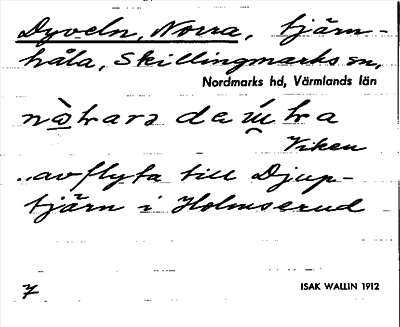 Dyveln, Norra, tjärn-
håla, Skillingmarks sn,
Nordmarks hd, Värmlands län
Viken
..avflyta till Djup-
tjärn i Holmserud
7
ISAK WALLIN 1912